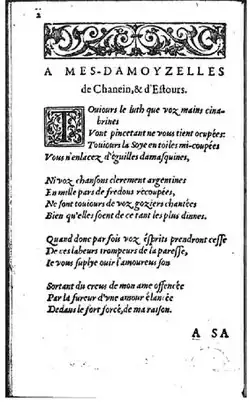 2
A MES-DAMOYZELLES
de Chanein, & d'Estours.
TOuiours le luth que voz mains cina-
brines
Vont pincetant ne vous tient ocupées:
Touiours la Soye en toiles mi-coupées
Vous n'enlacez d'éguilles damasquines,
Ni voz chansons clerement argentines
En mille pars de fredons recoupées,
Ne sont touiours de voz goziers chantées
Bien qu'elles soent de ce tant les plus dinnes.
Quand donc par fois voz ésprits prendront cesse
De ces labeurs trompeurs de la paresse,
Ie vous suplye ouir l'amoureus son
Sortant du creus de mon ame offencée
Par la fureur d'vne amour élancée
Dedans le fort forcé, de ma raison.
A SA